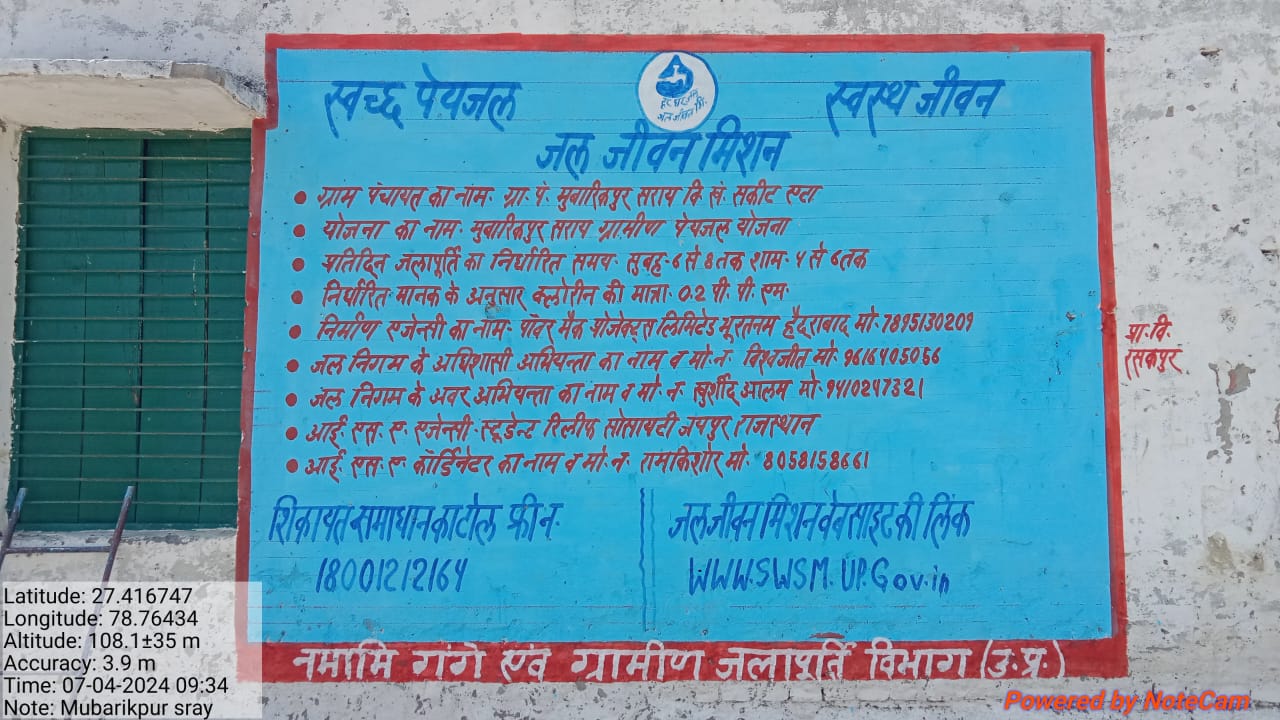 स्वच्छ पेयजल
स्वस्थ जीवन
हर घर जल
जल जीवन मि.
जल जीवन मिशन
• ग्राम पंचायत का नाम- ग्रा· पं· मुबारिकपुर सराय वि· खं· सकीट एटा
• योजना का नाम- मुबारिकपुर सराय ग्रामीण पेयजल योजना
• प्रतिदिन जलापूर्ति का निर्धारित समय- सुबह- 6 से 8 तक शाम- 4 से 6 तक
• निर्धारित मानक के अनुसार क्लोरीन की मात्रा- 0.2 पी· पी· एम·
• निर्माण एजेन्सी का नाम- पॉवर मैक प्रोजेक्ट्स लिमिटेड भूरतनम हैदराबाद मो- 7895130209
• जल निगम के अधिशासी अभियन्ता का नाम व मो·न· विश्वजीत मो- 9616405056
• जल निगम के अवर अभियन्ता का नाम व मो· न· खुर्शीद आलम मो- 9410247321
• आई· एस· ए· एजेन्सी- स्टूडेन्ट रिलीफ सोसायटी जयपुर राजस्थान
• आई· एस· ए· कॉर्डिनेटर का नाम व मो·न· रामकिशोर मो- 8058158661
शिकायत समाधान का टोल फ्री न·
18001212164
जल जीवन मिशन वेबसाइट की लिंक
WWW.SWSM.UP.Gov.in
नमामि गंगे एवं ग्रामीण जलापूर्ति विभाग (उ·प्र·)
प्रा· वि·
रसकपुर
Latitude: 27.416747
Longitude: 78.76434
Altitude: 108.1±35 m
Accuracy: 3.9 m
Time: 07-04-2024 09:34
Note: Mubarikpur sray
Powered by NoteCam